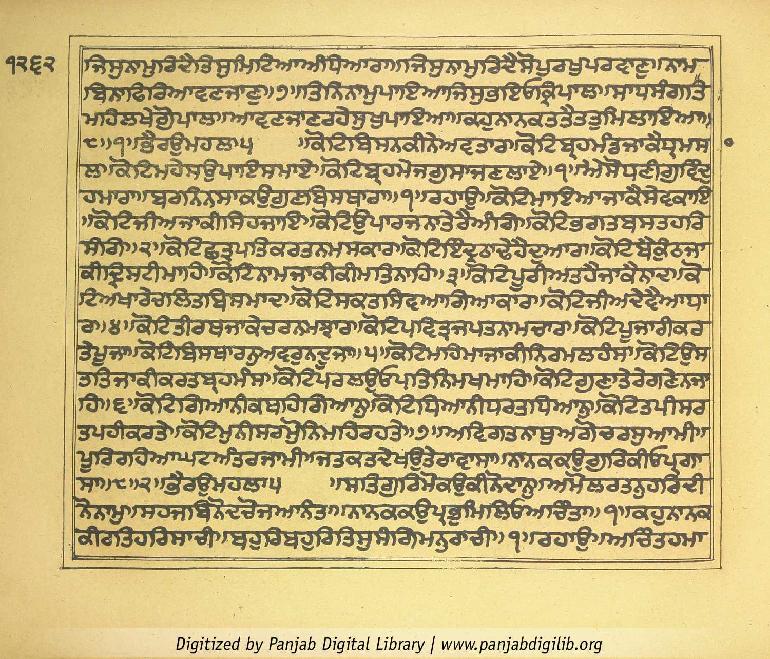 ੧੨੬੨
ਜਿਸੁਨਾਮੁਰਿਦੈਤਿਸੁਮਿਟਿਆਅੰਧਿਆਰਾ॥ਜਿਸੁਨਾਮੁਰਿਦੈਸੋਪੁਰਖੁਪਰਵਾਣੁ॥ਨਾਮ
ਬਿਨਾਫਿਰਿਆਵਣਜਾਣੁ॥੭॥ਤਿਨਿਨਾਮੁਪਾਇਆਜਿਸੁਭਇਓਕ੍ਰਿਪਾਲ॥ਸਾਧਸੰਗਤਿ
ਮਹਿਲਖੇਗੋੁਪਾਲ॥ਆਵਣਜਾਣਰਹੇਸੁਖੁਪਾਇਆ॥ਕਹੁਨਾਨਕਤਤੈਤਤੁਮਿਲਾਇਆ॥
੮॥੧॥ਭੈਰਉਮਹਲਾ੫ ॥ਕੋਟਿਬਿਸਨਕੀਨੇਅਵਤਾਰ॥ਕੋਟਿਬ੍ਰਹਮੰਡਜਾਕੈਧ੍ਰਮਸਾ
ਲ॥ਕੋਟਿਮਹੇਸਉਪਾਇਸਮਾਏ॥ਕੋਟਿਬ੍ਰਹਮੇਜਗੁਸਾਜਣਲਾਏ॥੧॥ਐਸੋਧਣੀਗੁਵਿੰਦੁ
ਹਮਾਰਾ॥ਬਰਨਿਨਸਾਕਉਗੁਣਬਿਸਥਾਰਾ॥੧॥ਰਹਾਉ॥ਕੋਟਿਮਾਇਆਜਾਕੈਸੇਵਕਾਇ
॥ਕੋਟਿਜੀਅਜਾਕੀਸਿਹਜਾਇ॥ਕੋਟਿਉਪਾਰਜਨਾਤੇਰੈਅੰਗਿ॥ਕੋਟਿਭਗਤਬਸਤਹਰਿ
ਸੰਗਿ॥੨॥ਕੋਟਿਛਤ੍ਰਪਤਿਕਰਤਨਮਸਕਾਰ॥ਕੋਟਿਇੰਦ੍ਰਠਾਢੇਹੈਦੁਆਰ॥ਕੋਟਿਬੈਕੁੰਠਜਾ
ਕੀਦ੍ਰਿਸਟੀਮਾਹਿ॥ਕੋਟਿਨਾਮਜਾਕੀਕੀਮਤਿਨਾਹਿ॥੩॥ਕੋਟਿਪੂਰੀਅਤਹੈਜਾਕੈਨਾਦ॥ਕੋ
ਟਿਅਖਾਰੇਚਲਿਤਬਿਸਮਾਦ॥ਕੋਟਿਸਕਤਿਸਿਵਆਗਿਆਕਾਰ॥ਕੋਟਿਜੀਅਦੇਵੈਆਧਾ
ਰ॥੪॥ਕੋਟਿਤੀਰਥਜਾਕੇਚਰਨਮਝਾਰ॥ਕੋਟਿਪਵਿਤ੍ਰਜਪਤਨਾਮਚਾਰ॥ਕੋਟਿਪੂਜਾਰੀਕਰ
ਤੇਪੂਜਾ॥ਕੋਟਿਬਿਸਥਾਰਨੁਅਵਰੁਨਦੂਜਾ॥੫॥ਕੋਟਿਮਹਿਮਾਜਾਕੀਨਿਰਮਲਹੰਸ॥ਕੋਟਿਉਸ
ਤਤਿਜਾਕੀਕਰਤਬ੍ਰਹਮੰਸ॥ਕੋਟਿਪਰਲਉਓਪਤਿਨਿਮਖਮਾਹਿ॥ਕੋਟਿਗੁਣਾਤੇਰੇਗਣੇਨਜਾ
ਹਿ॥੬॥ਕੋਟਿਗਿਆਨੀਕਥਹਿਗਿਆਨੁ॥ਕੋਟਿਧਿਆਨੀਧਰਤਧਿਆਨੁ॥ਕੋਟਿਤਪੀਸਰ
ਤਪਹੀਕਰਤੇ॥ਕੋਟਿਮੁਨੀਸਰਮੋੁਨਿਮਹਿਰਹਤੇ॥੭॥ਅਵਿਗਤਨਾਥੁਅਗੋਚਰਸੁਆਮੀ॥
ਪੂਰਿਰਹਿਆਘਟਅੰਤਰਜਾਮੀ॥ਜਤਕਤਦੇਖਉਤੇਰਾਵਾਸਾ॥ਨਾਨਕਕਉਗੁਰਿਕੀਓਪ੍ਰਗਾ
ਸਾ॥੮॥੨॥ਭੈਰਉਮਹਲਾ੫ ॥ਸਤਿਗੁਰਿਮੋਕਉਕੀਨੋਦਾਨੁ॥ਅਮੋਲਰਤਨੁਹਰਿਦੀ
ਨੋਨਾਮੁ॥ਸਹਜਬਿਨੋਦਚੋਜਆਨੰਤਾ॥ਨਾਨਕਕਉਪ੍ਰਭੁਮਿਲਿਓਅਚਿੰਤਾ॥੧॥ਕਹੁਨਾਨਕ
ਕੀਰਤਿਹਰਿਸਾਚੀ॥ਬਹੁਰਿਬਹੁਰਿਤਿਸੁਸੰਗਿਮਨੁਰਾਚੀ॥੧॥ਰਹਾਉ॥ਅਚਿੰਤਹਮਾ
Digitized by Panjab Digital Library | www.panjabdigilib.org